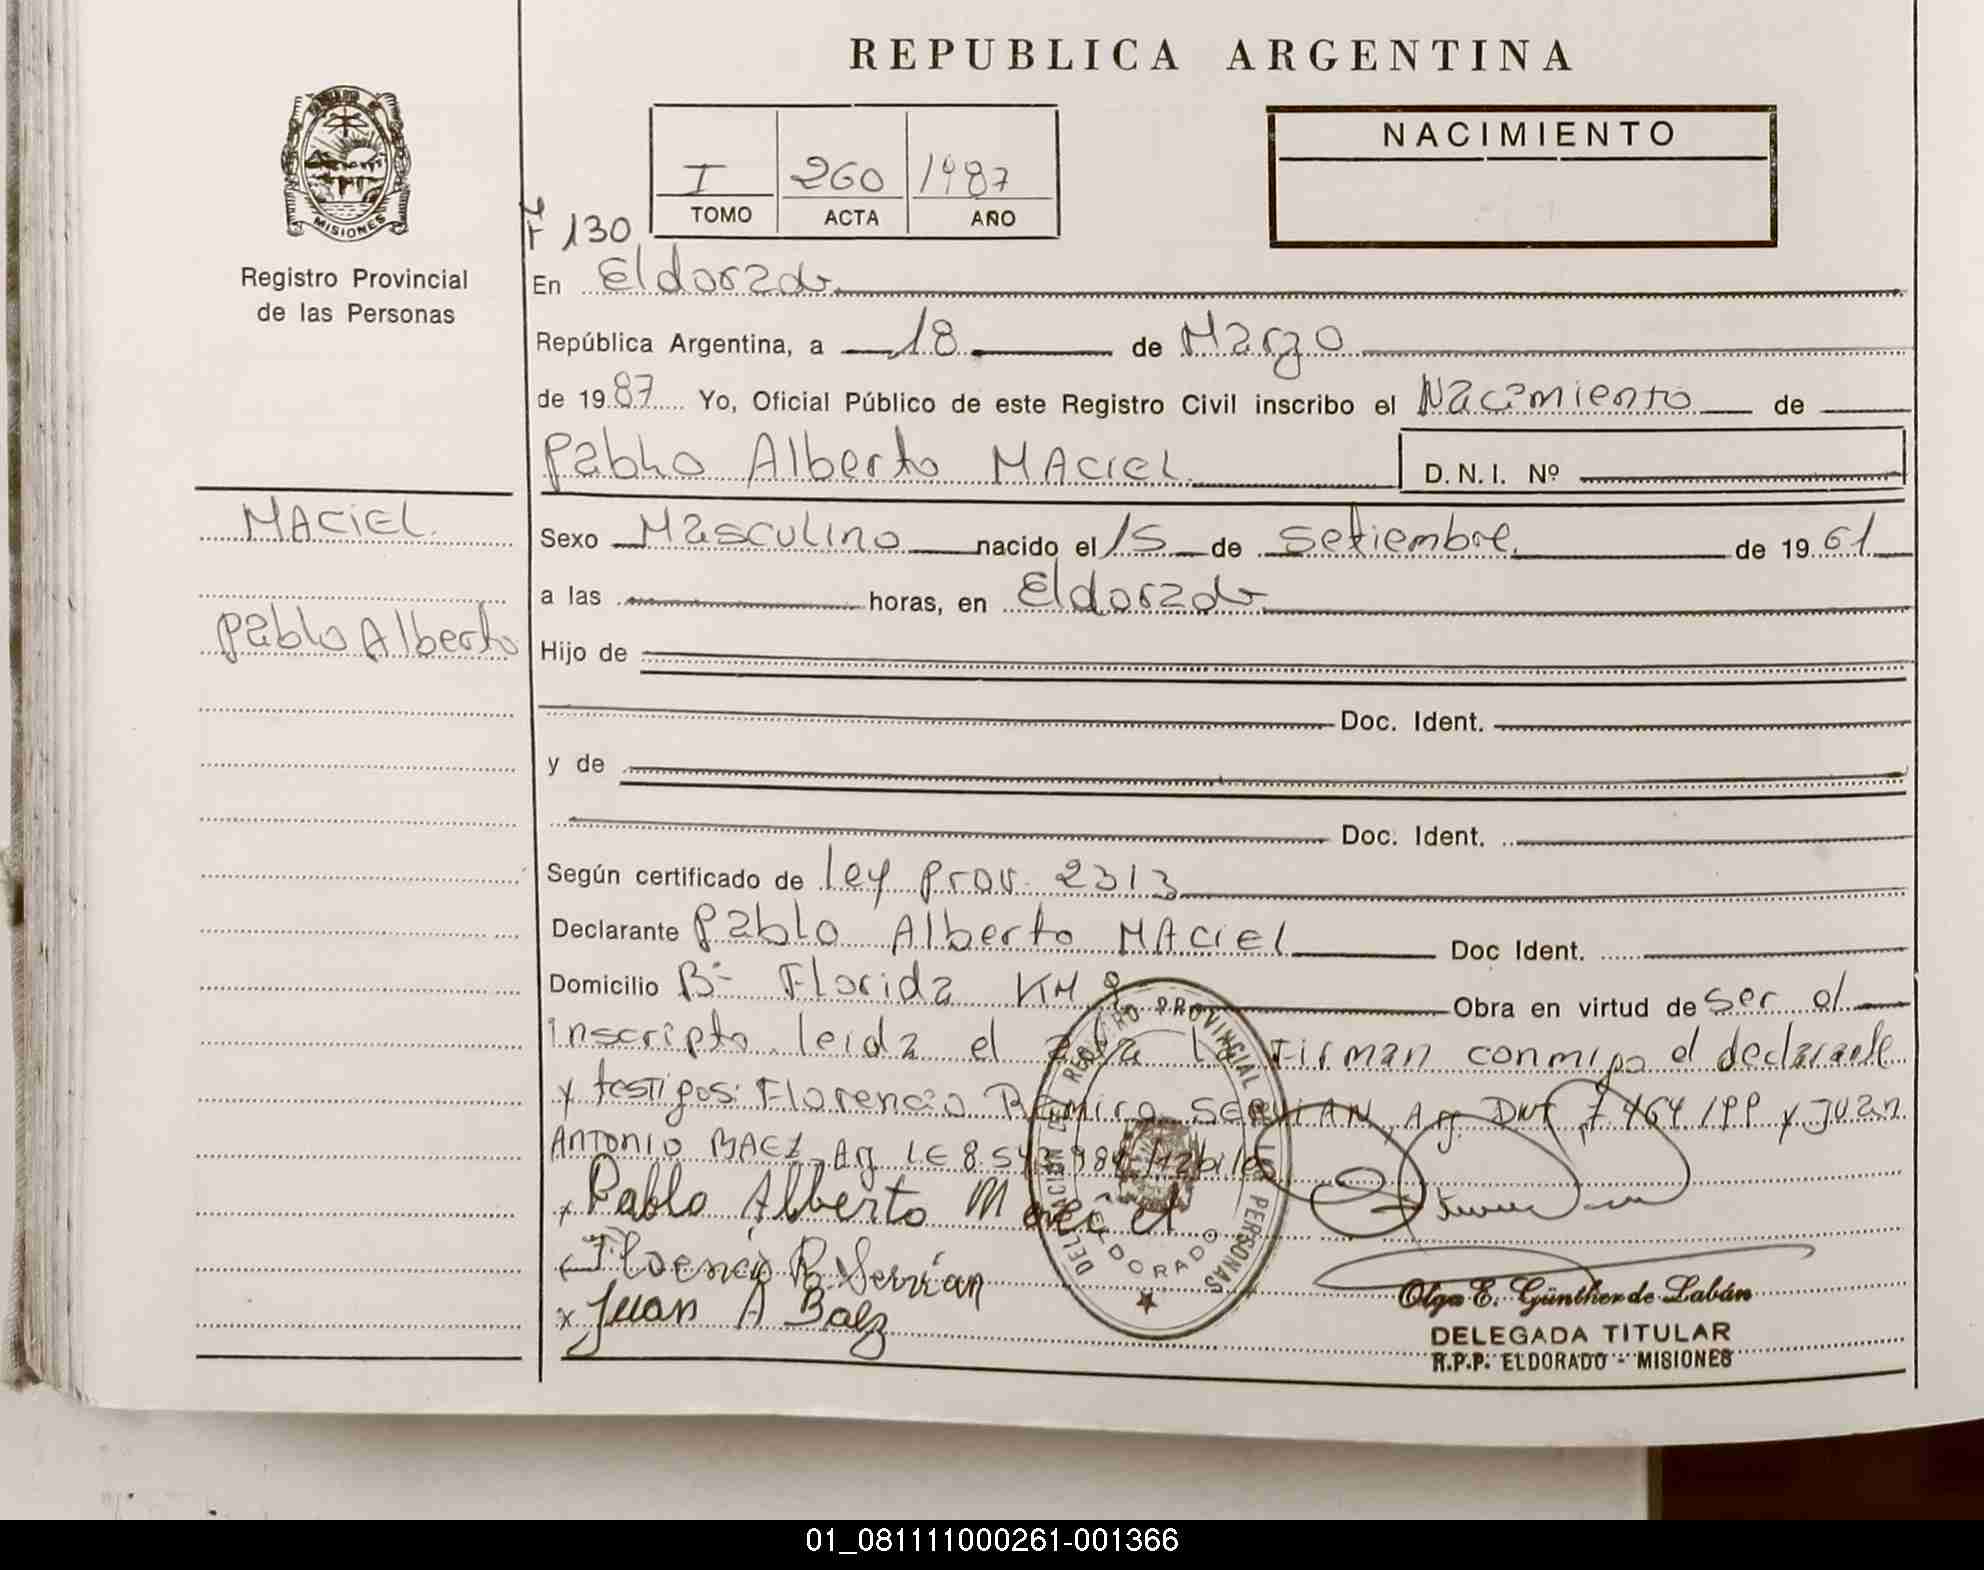 REPUBLICA ARGENTINA
NACIMIENTO
I 260 1987
TOMO ACTA AÑO
MISIONES
Fº 130
Registro Provincial
de las Personas
En Eldorado
República Argentina, a 18 de Marzo
de 1987 Yo, Oficial Público de este Registro Civil inscribo el Nacimiento de
Pablo Alberto MACIEL D.N.I. Nº
MACIEL
Pablo Alberto
Sexo Masculino nacido el 15 de Setiembre de 1961
a las horas, en Eldorado
Hijo de
Doc. Ident.
y de
Doc. Ident.
Según certificado de Ley Prov. 2313
Declarante Pablo Alberto MACIEL Doc Ident.
Domicilio Bº Florida KM 9 Obra en virtud de ser el
inscripto. leida el acta la Firman conmigo el declarante
y testigos: Florencio Ramiro SERVIAN, Arg. DNI y Juan
ANTONIO BAEZ Arg LE Habiles
x Pablo Alberto Maciel
x Florencio R. Servian
x Juan A Baez
DELEGACION DEL REGISTRO PROVINCIAL DE LAS PERSONAS
ELDORADO
Olga E. Günther de Labán
DELEGADA TITULAR
R.P.P. ELDORADO - MISIONES
01_081111000261-001366